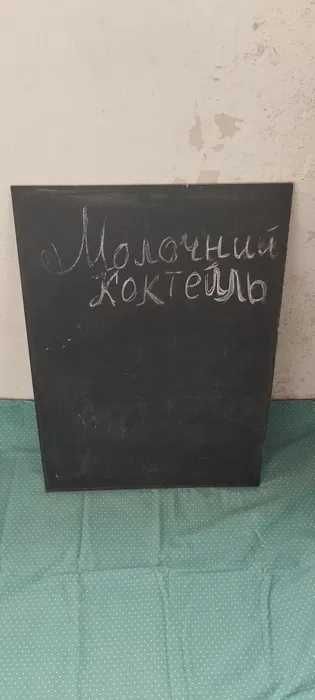 Молочний
коктейль